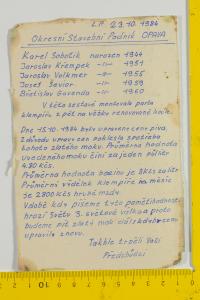 L.P. 29.10.1984
Okresní Stavební Podnik OPAVA
Karel Sobotík narozen 1944
Jaroslav Křempek -"- 1951
Jaroslav Volkmer -"- 1956
Josef Bavior -"- 1959
Břetislav Bavenda -"- 1960
V této sestavě montovala parta
klempířů z pět na věžku renovované kostele.
Dne 15.10.1984 byla upravena cena piva.
Z důvodu úpravy cen poklesla spotřeba
tohoto zlatého moku. Průměrná hodnota
uvedeného moku činí za jeden půllitr
4.90 kčs.
Průměrná hodnota benzinu je 8 Kčs za litr
Průměrný výdělek klempíře za měsíc
je 2800 kčs hrubá mzda.
V době kdy píšeme tyto pamětihodnosti
hrozí Světu 3. světová válka a proto
budeme pít zlatý mok dál kdyby cenu
upravili znovu.
Takhle tvrdí Vaši
Předchůdci